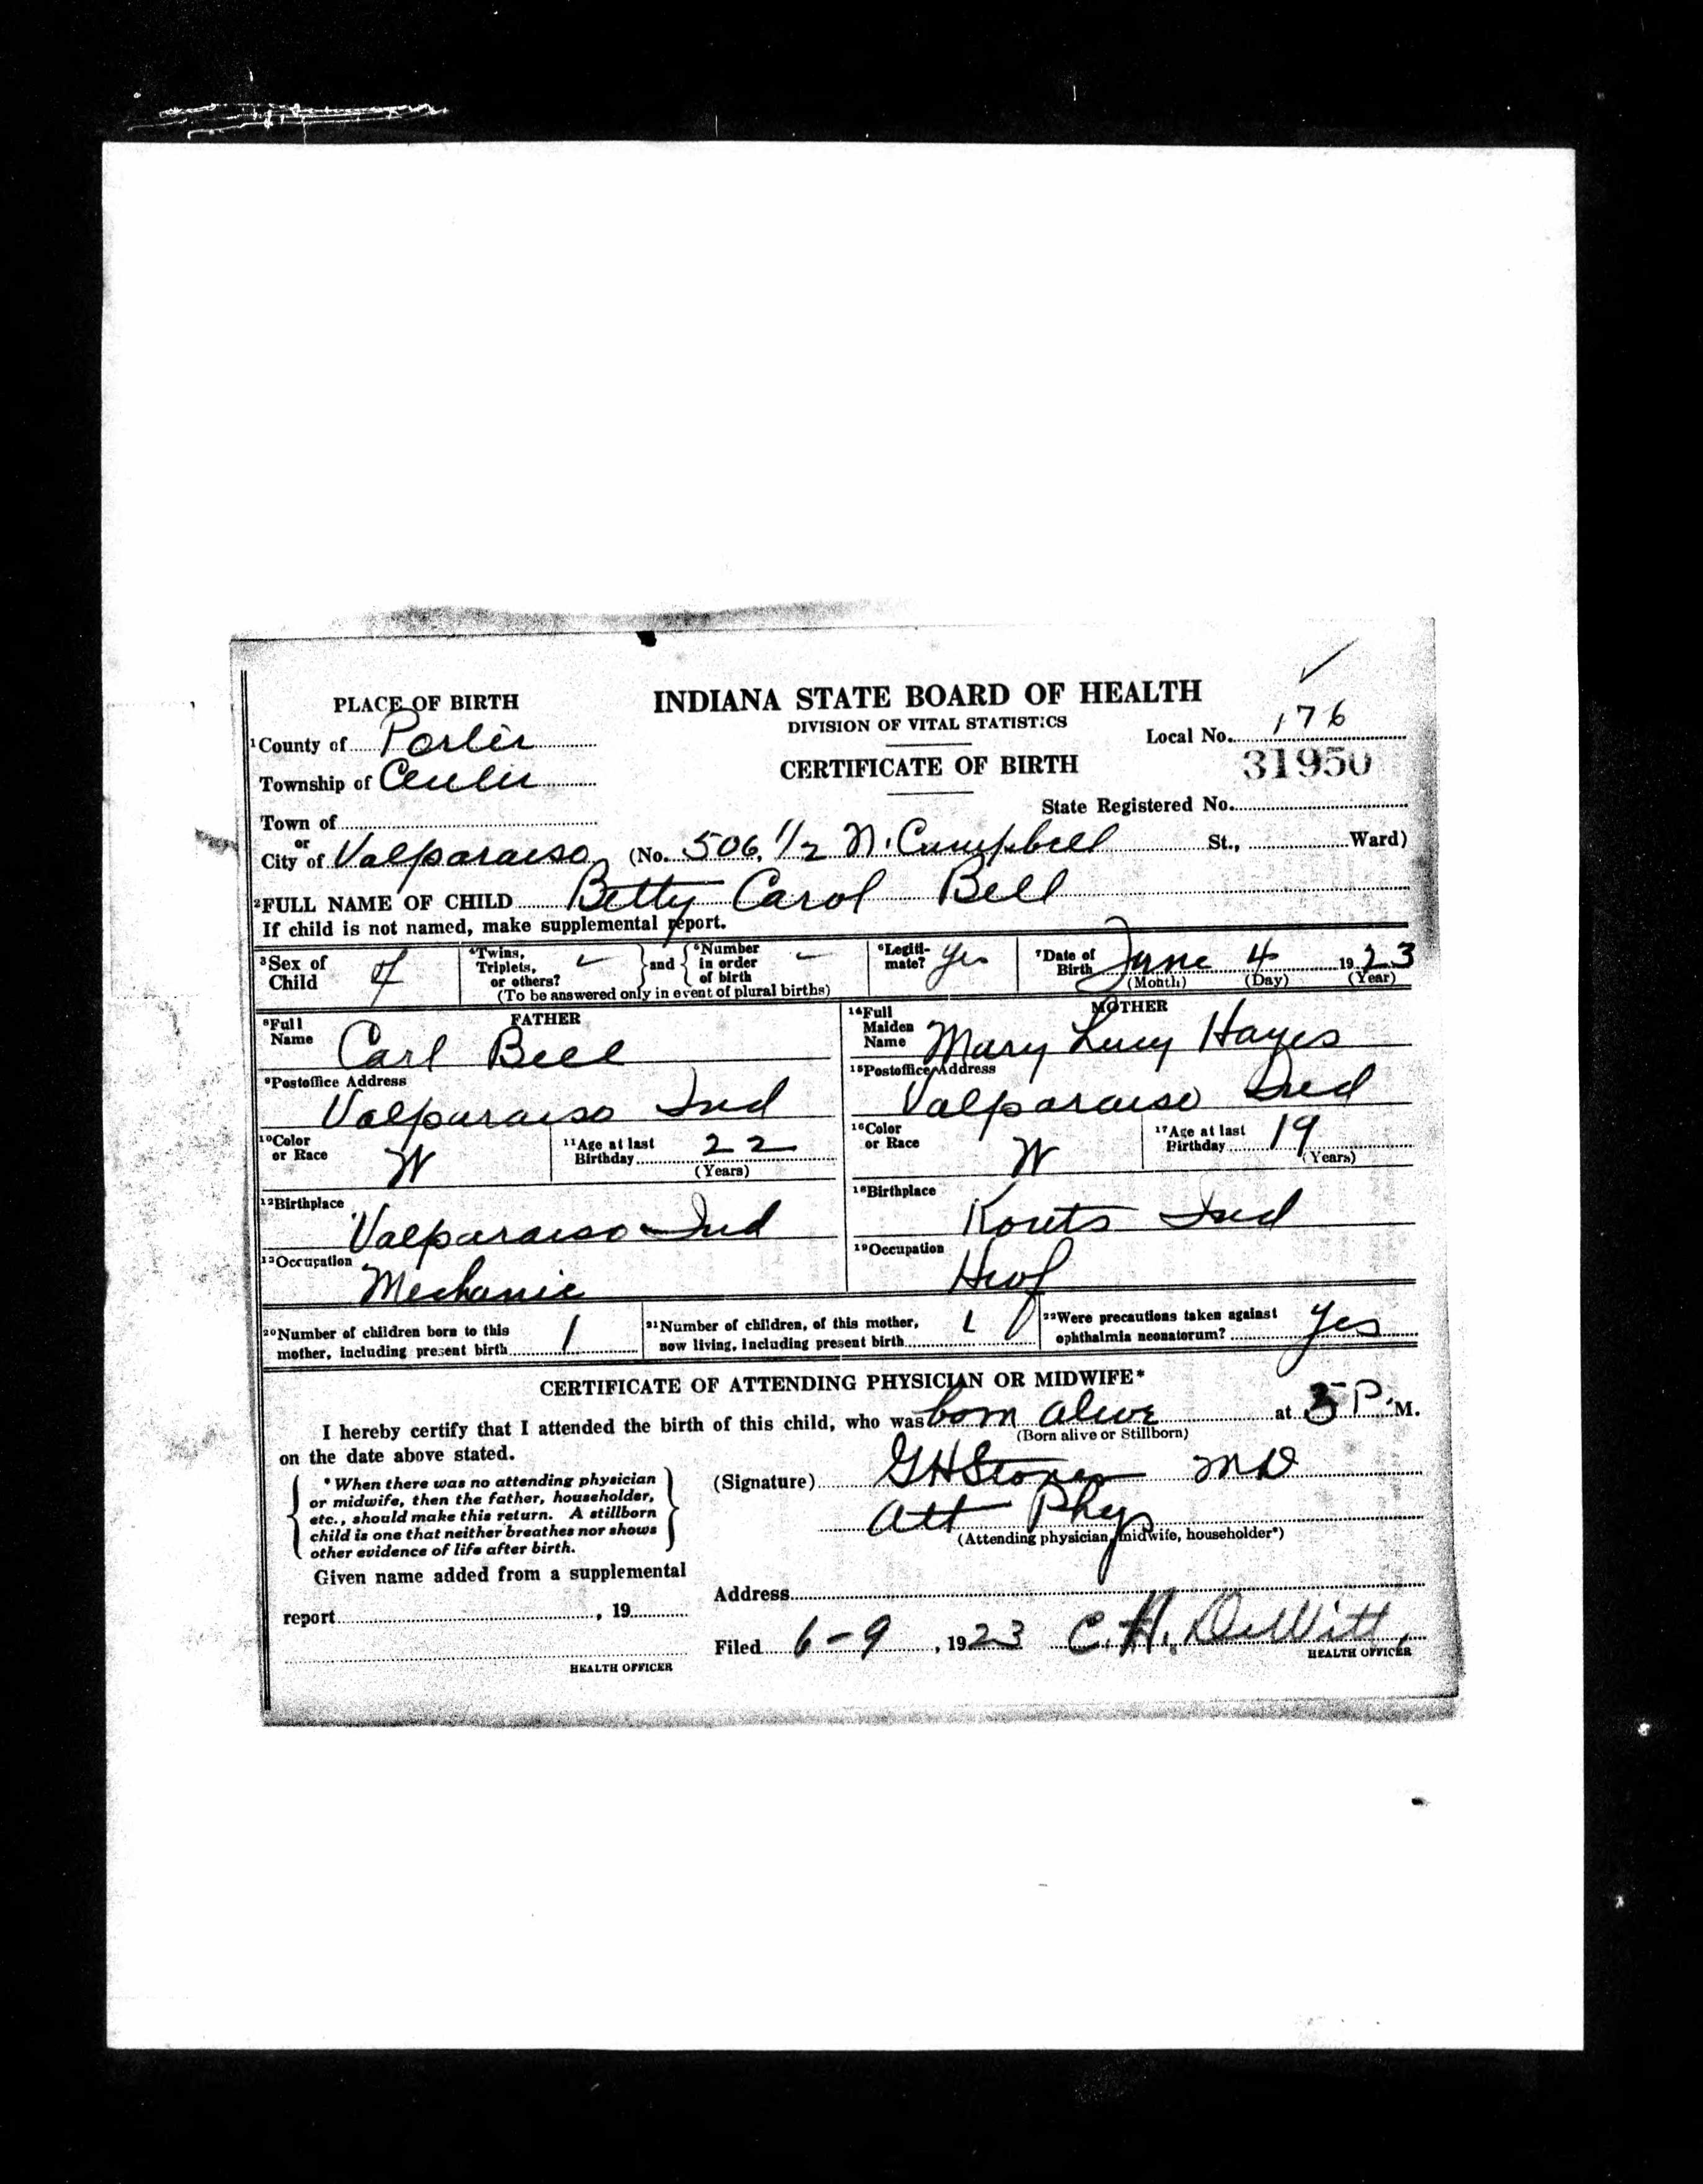 PLACE OF BIRTH
INDIANA STATE BOARD OF HEALTH
DIVISION OF VITAL STATISTICS
CERTIFICATE OF BIRTH
1 County of Porter
Township of Center
Town of
or
City of Valparaiso
Local No. 176
31950
State Registered No.
(No. 506 1/2 N. Campbell St., Ward)
2 FULL NAME OF CHILD Betty Carol Bell
If child is not named, make supplemental report.
3 Sex of Child f
4 Twins, Triplets, or others? and 5 Number in order of birth
(To be answered only in event of plural births)
6 Legitimate? Yes
7 Date of Birth June 4 1923
(Month) (Day) (Year)
FATHER
8 Full Name Carl Bell
9 Postoffice Address
Valparaiso Ind
10 Color or Race W
11 Age at last Birthday 22
(Years)
12 Birthplace
Valparaiso Ind
13 Occupation
Mechanic
MOTHER
14 Full Maiden Name Mary Lucy Hayes
15 Postoffice Address
Valparaiso Ind
16 Color or Race W
17 Age at last Birthday 19
(Years)
18 Birthplace
Kouts Ind
19 Occupation
Hwf
20 Number of children born to this mother, including present birth 1
21 Number of children, of this mother, now living, including present birth 1
22 Were precautions taken against ophthalmia neonatorum? Yes
CERTIFICATE OF ATTENDING PHYSICIAN OR MIDWIFE*
I hereby certify that I attended the birth of this child, who was born alive at P. M.
(Born alive or Stillborn)
on the date above stated.
* When there was no attending physician
or midwife, then the father, householder,
etc., should make this return. A stillborn
child is one that neither breathes nor shows
other evidence of life after birth.
(Signature) G H Stoner MD
Att Phys
(Attending physician, midwife, householder*)
Given name added from a supplemental
report , 19
HEALTH OFFICER
Address
Filed 6-9, 1923 C. H. DeWitt,
HEALTH OFFICER